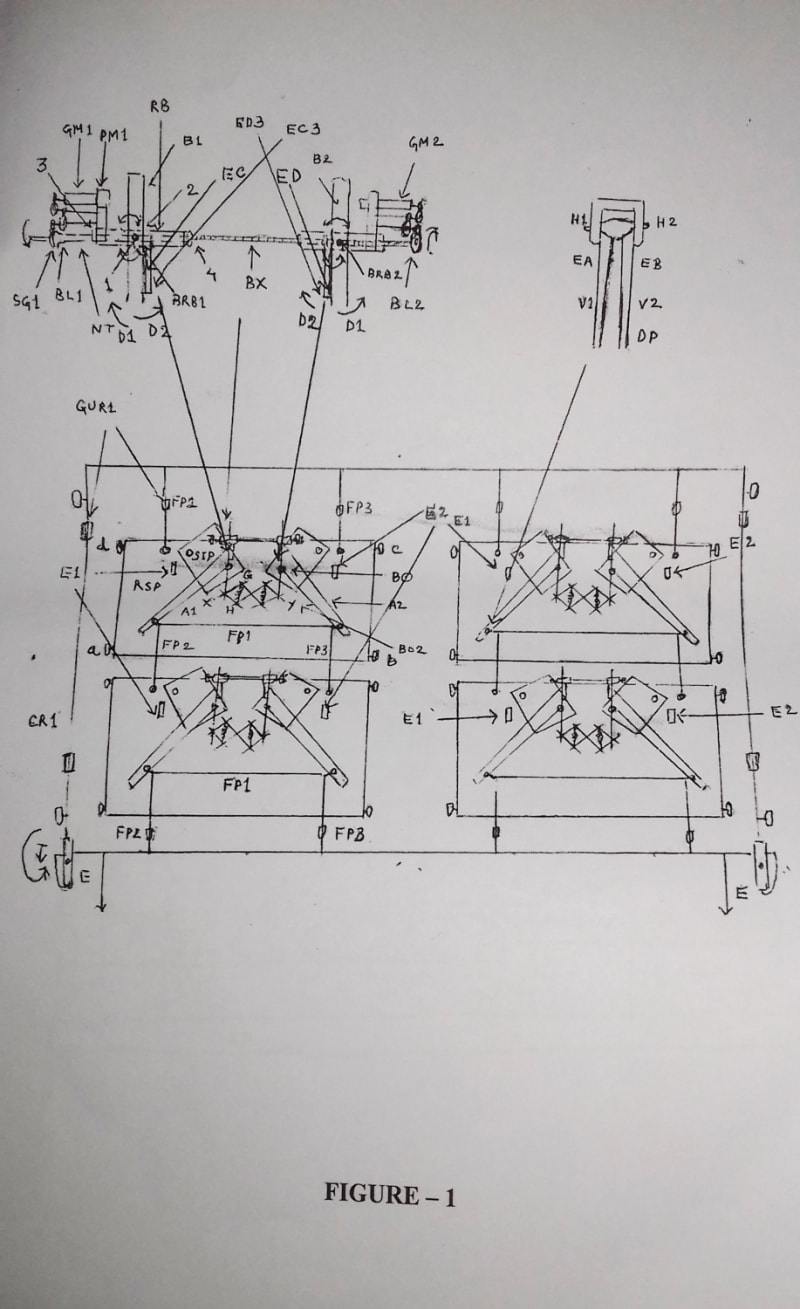 RB
GM1 PM1
B1
ED3
EC3
GM2
3
2
EC
ED
B2
H1
H2
EA
EB
1
4
BX
BRB2
SG1
BL1
BRB1
BL2
V1
V2
NT
D1
D2
D2
D1
DP
GUR1
FP1
FP3
E2
E1
d
STP
c
E2
E1
RSP
G
BO
A1
X
H
Y
A2
FP1
a
FP2
FP3
BO2
b
CR1
E1
E2
FP1
FP2
FP3
I
E
E
FIGURE – 1